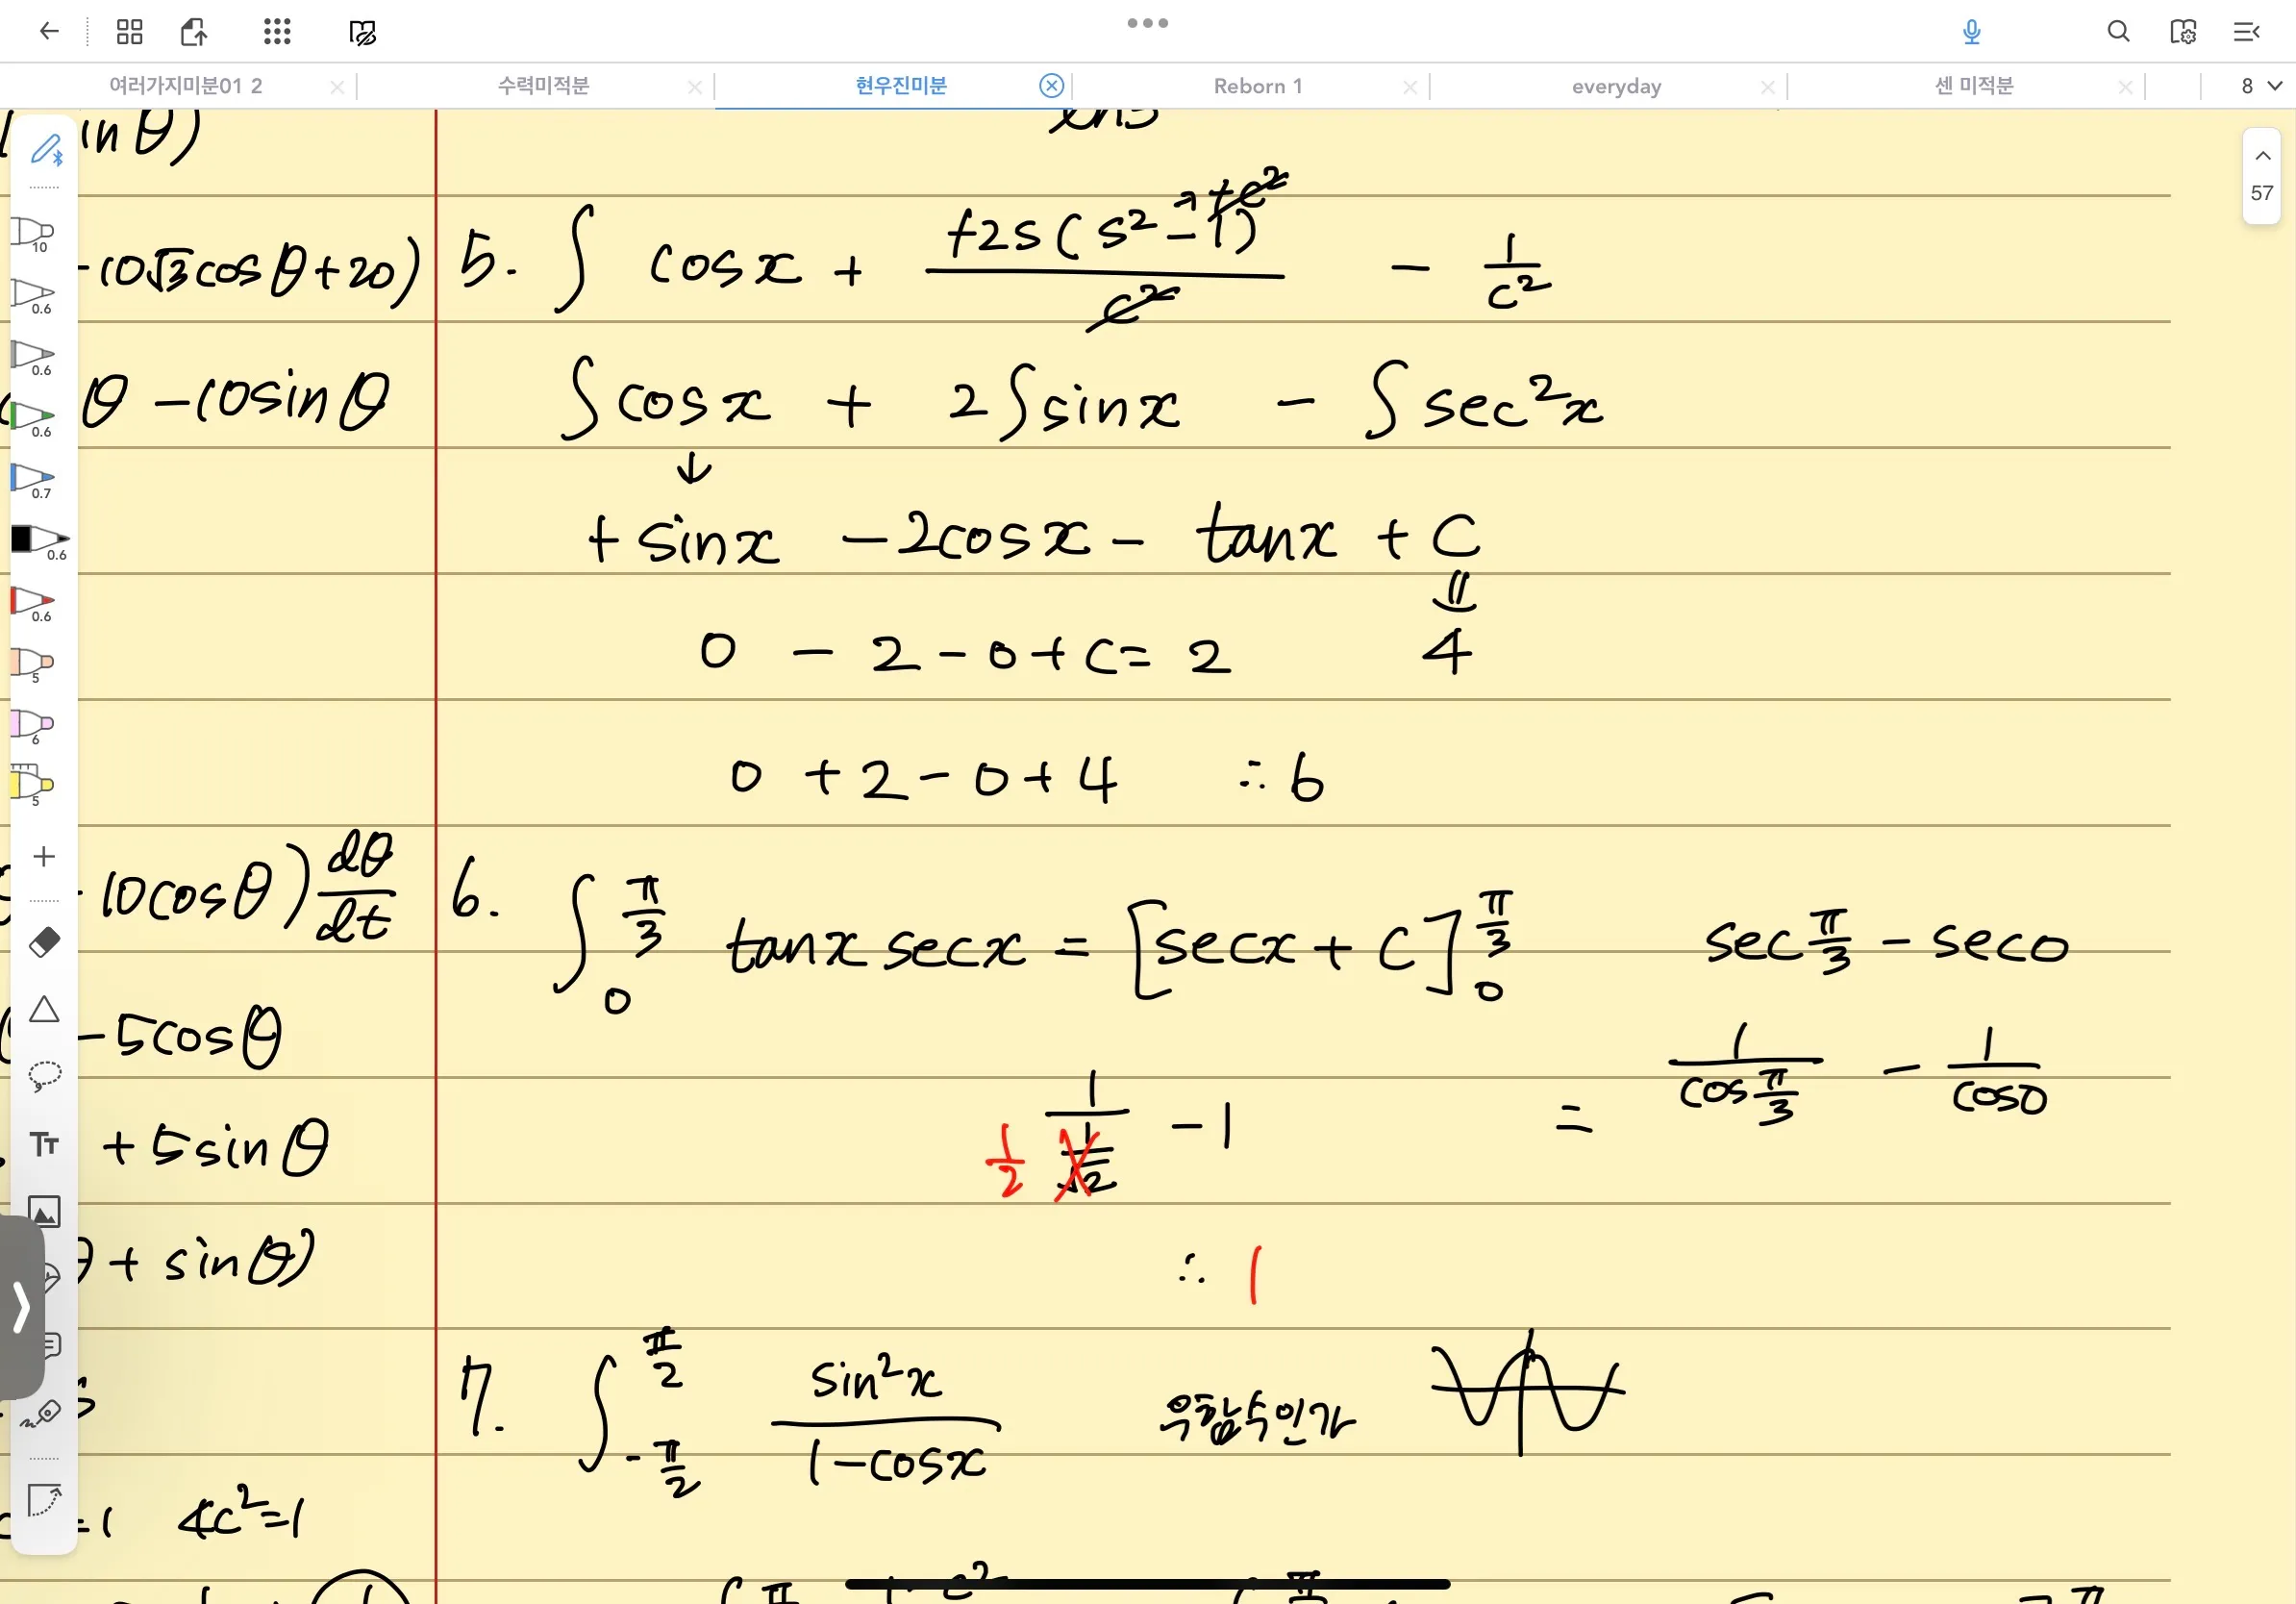 여러가지미분01 2
수력미적분
현우진미분
Reborn 1
everyday
센 미적분
8
57
10
0.6
0.6
0.6
0.7
0.6
0.6
5
6
5
in θ)
-10√3cosθ+20)
θ -10sinθ
-10cosθ) dθ/dt
-5cosθ
+5sinθ
θ + sinθ)
=1 4c²=1
5. ∫ cosx + +2s(s²-1)/c² - 1/c²
∫cosx + 2∫sinx - ∫sec²x
↓
+sinx -2cosx - tanx + C
0 - 2 - 0 + C = 2 4
0 + 2 - 0 + 4 ∴ 6
6. ∫₀^(π/3) tanx secx = [secx + C]₀^(π/3) sec π/3 - sec0
1/(1/√2) - 1 = 1/cos(π/3) - 1/cos0
1/2
∴ 1
7. ∫_(-π/2)^(π/2) sin²x/(1-cosx) 우함수인가